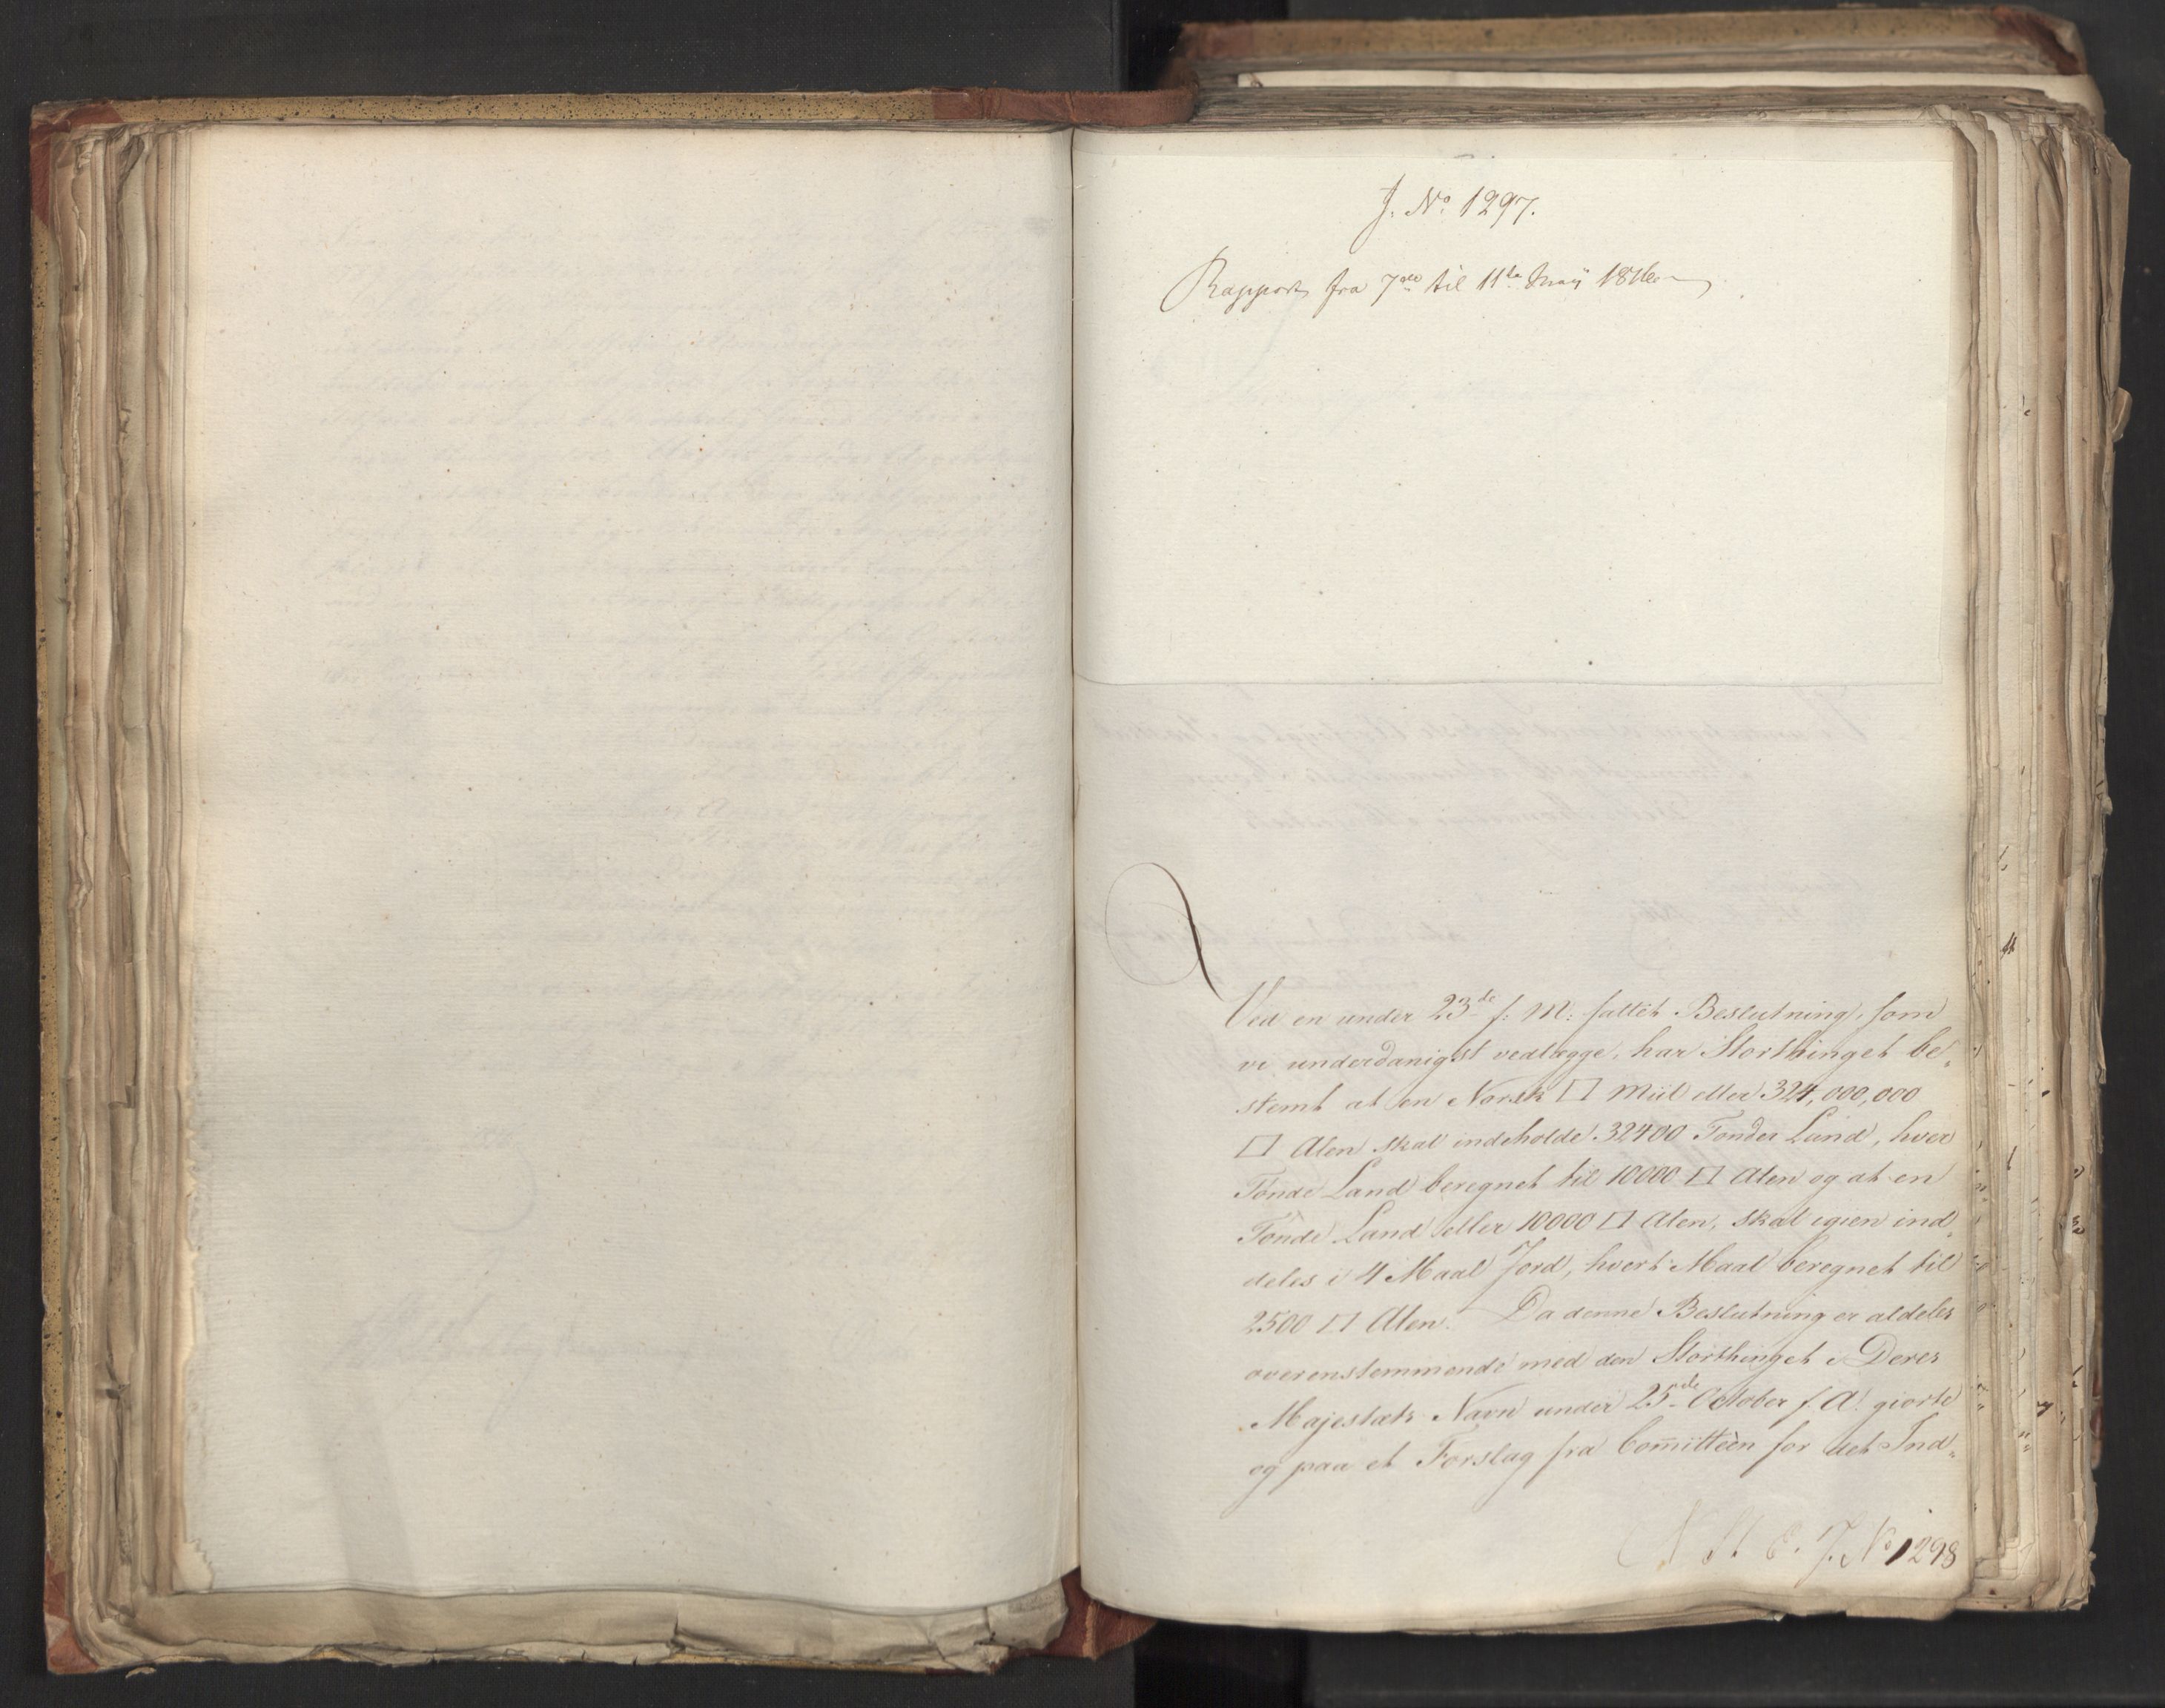 J. No 1297.
Rapport fra 7de til 11te Maij 1816
Ved en under 23de f: M: fattet Beslutning, som
vi underdanigst vedlægge, har Storthinget be„
stemt at en Norsk □ Miil eller 324,000,000
□ Alen skal indeholde 32400 Tønder Land, hver
Tønde Land beregnet til 10000 □ Alen og at en
Tønde Land eller 10000 □ Alen, skal igien ind„
deles i 4 Maal Jord, hvert Maal beregnet til
2500 □ Alen. Da denne Beslutning er aldeles
overenstemmende med den Storthinget i Deres
Majestæts Navn under 25de October f. A. giorte
og paa et Forslag fra Com̅itteen for det Ind„
N. St. E. J. No 1298